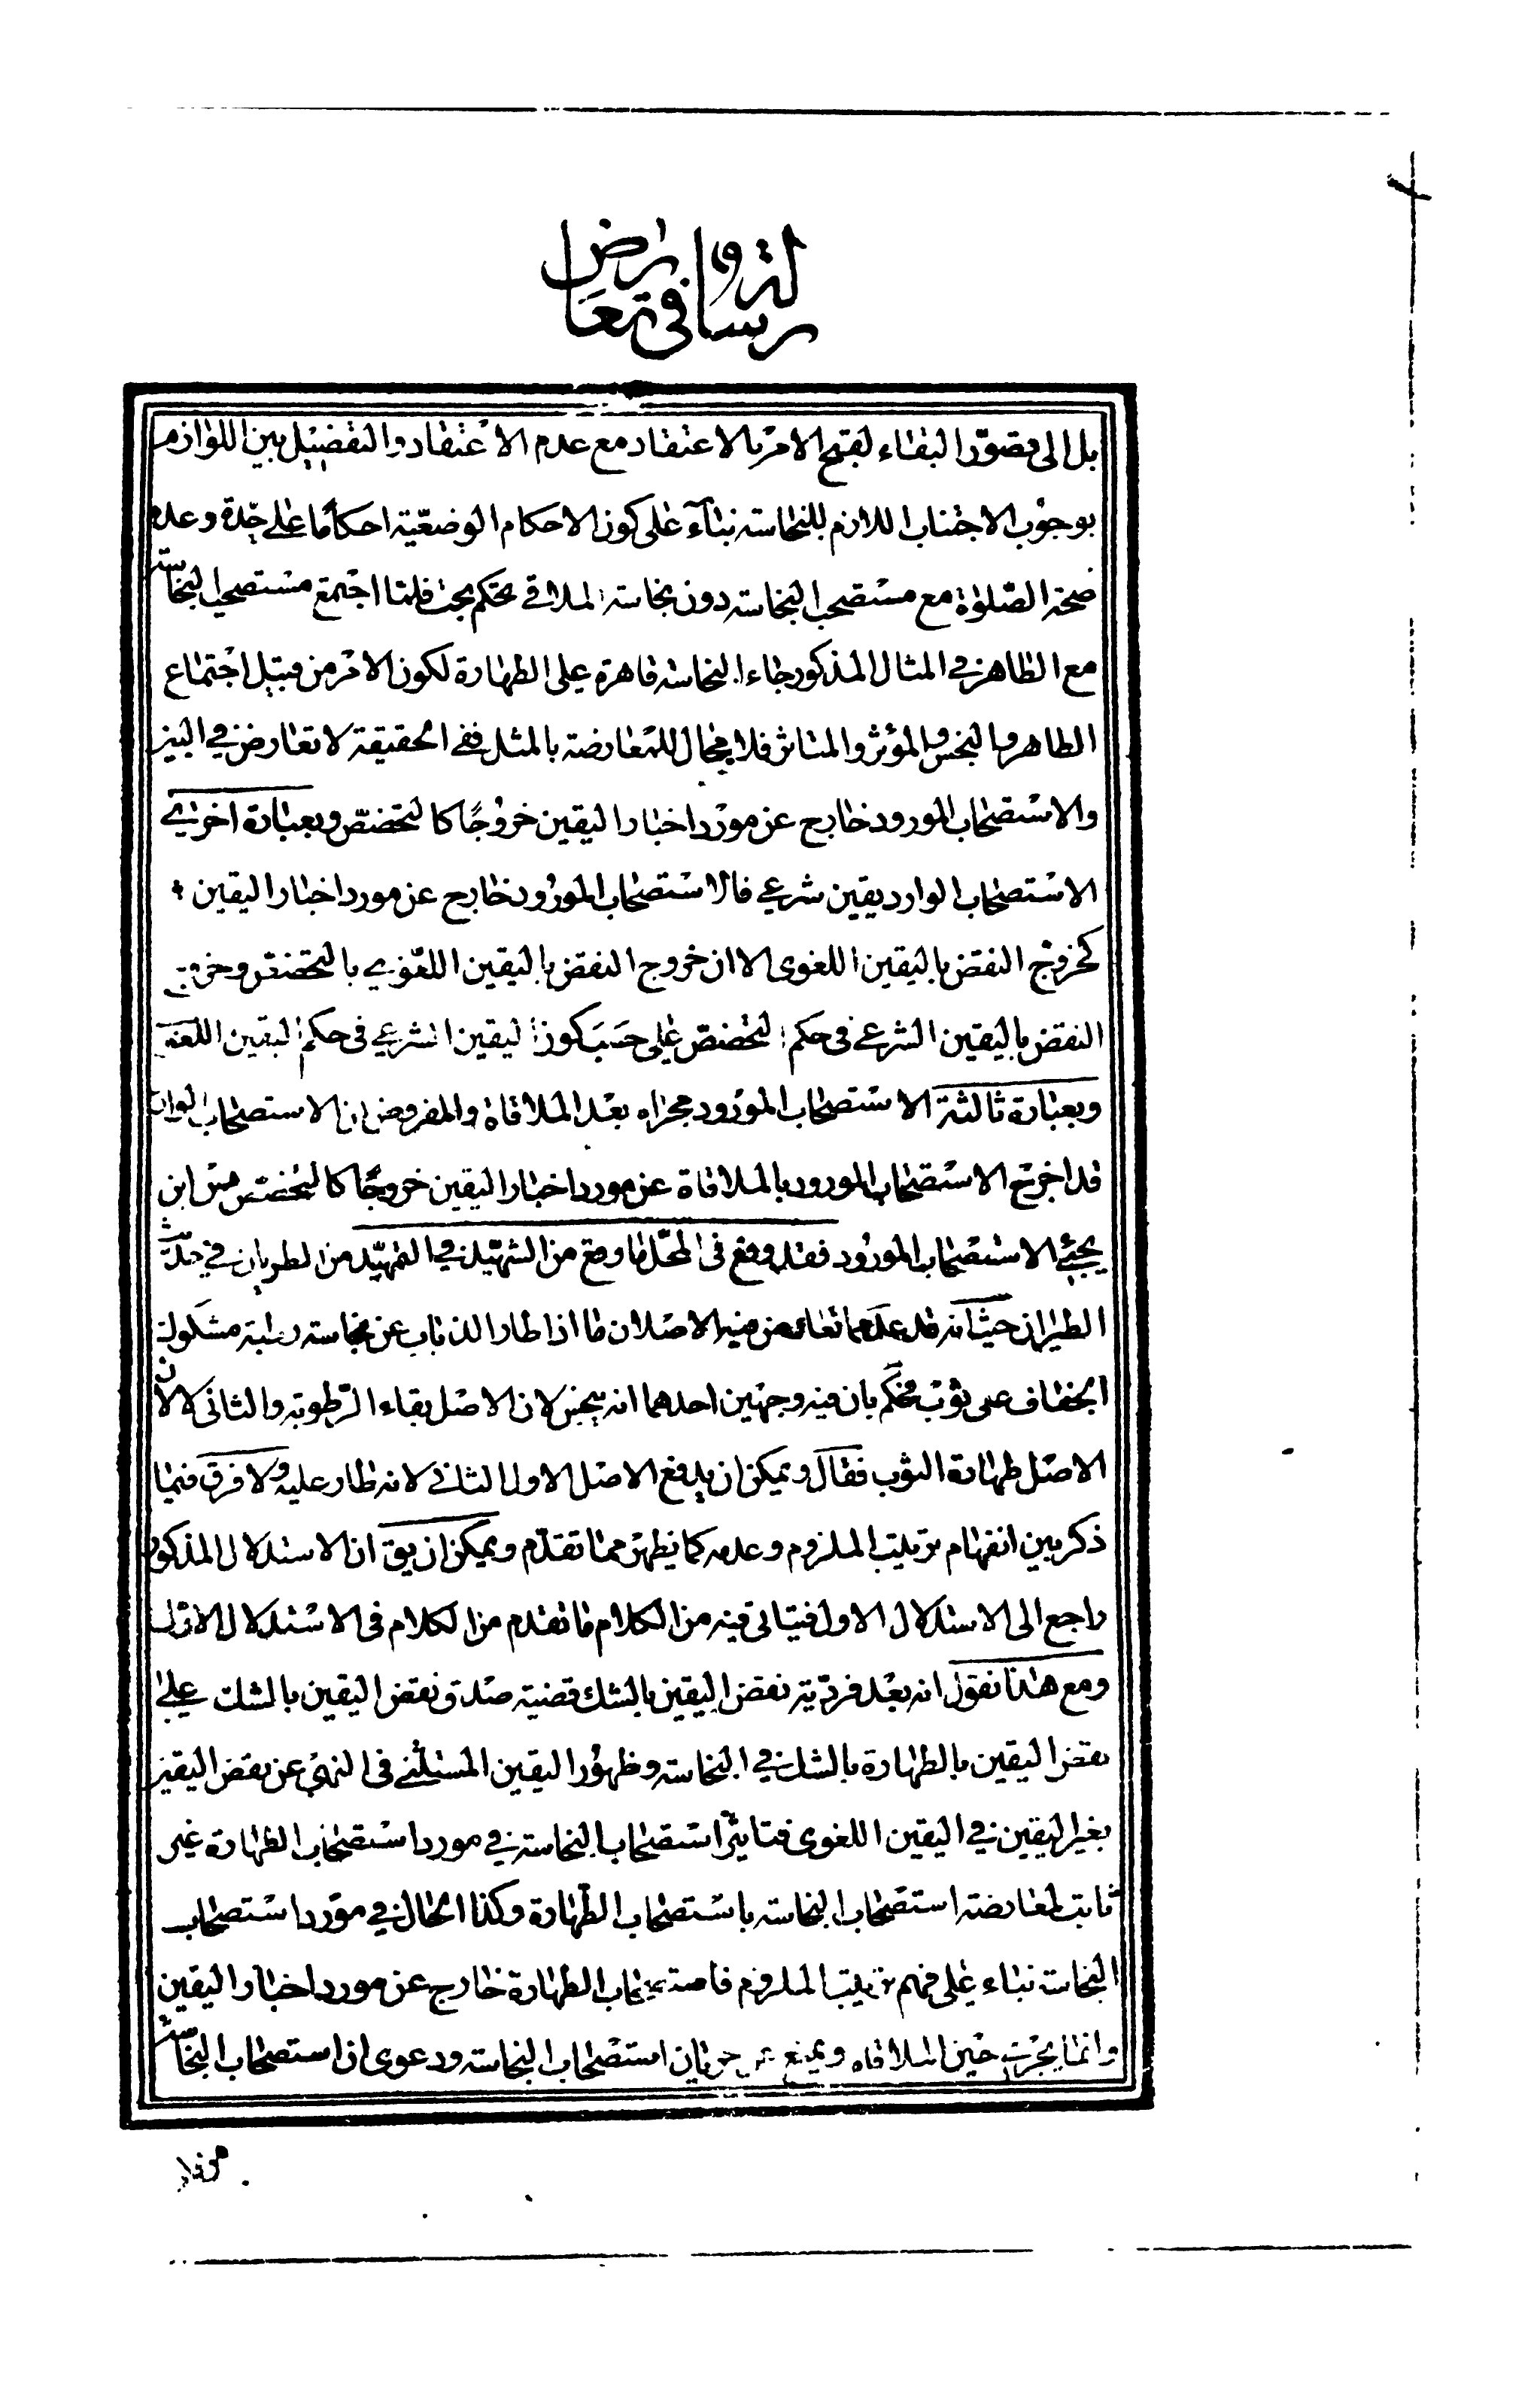 رسالة في تعارض
بل الى تصوّر البقاء لقبح الامر بالاعتقاد مع عدم الاعتقاد والتفضيل بين اللوازم
بوجوب الاجتناب اللازم للنجاسته بناء على كون الاحكام الوضعيّة احكامًا على حدة وعدم
صحة الصّلوة مع مستصحب النجاسته دون نجاسته الملاقي تحكم بحت فلمّا اجتمع مستصحب النجاسة
مع الطاهر في المثال المذكور جاء النجاسته قاهرة على الطهارة لكون الامر من قبيل اجتماع
الطاهر والنجس والمؤثر والمتاثر فلا مجال للمعارضة بالمثل ففي الحقيقة لا تعارض في البين
والاستصحاب المورود خارج عن مورد اخبار اليقين خروجًا كالتخصّص وبعبارة اخرى
الاستصحاب الوارد يقين شرعي فالاستصحاب المورود خارج عن مورد اخبار اليقين
كخروج النقض باليقين اللغوى الا ان خروج النقض باليقين اللغوي بالتخصّص وخروج
النقض باليقين الشرعي في حكم التخصّص على حسب كون اليقين الشرعي في حكم اليقين اللغوي
وبعبارة ثالثة الاستصحاب المورود مجراه بعد الملاقاة والمفروض ان الاستصحاب الوارد
قد اخرج الاستصحاب المورود بالملاقاة عن مورد اخبار اليقين خروجًا كالتخصّص من اين
يجيئ الاستصحاب المورود فقد وقع في المحل ما وقع من الشهيد في التمهيد من الطريان في جلّة
الطيران حيث انه قد عدّ مما تعارض فيه الاصلان ما اذا طار الذباب عن نجاسته رطبة مشكوك
الجفاف على ثوب محكم بان فيه وجهين احدهما انه ينجس لان الاصل بقاء الرّطوبة والثاني لا لان
الاصل طهارة الثوب فقال ويمكن ان يدفع الاصل الاول الثاني لانه طار عليه ولا فرق فيما
ذكر بين انفهام ترتيب الملزوم وعدمه كما يظهر مما تقدّم ويمكن ان يق ان الاستدلال المذكور
راجع الى الاستدلال الاول فيتاتى فيه من الكلام ما تقدم من الكلام في الاستدلال الاول
ومع هذا نقول انه بعد فرديّة نقض اليقين بالشك قضية صدق نقض اليقين بالشك على
نقض اليقين بالطهارة بالشك في النجاسته وظهور اليقين المستثنى في النهي عن نقض اليقين
بغير اليقين في اليقين اللغوى فتاثير استصحاب النجاسته في مورد استصحاب الطهارة غير
ثابت لمعارضة استصحاب النجاسته باستصحاب الطّهارة وكذا الحال في مورد استصحاب
النجاسته بناء على فهم ترتيب الملزوم فاستصحاب الطهارة خارج عن مورد اخبار اليقين
وانما يجرى حين الملاقاه ويمنع عن جريان استصحاب النجاسته ودعوى ان استصحاب النجاسة